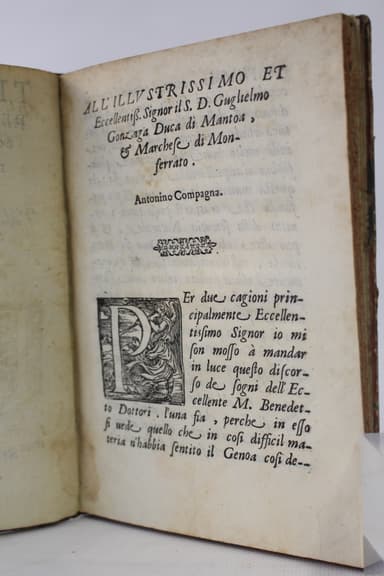 ALL'ILLVSTRISSIMO ET
Eccellentiſſ. Signor il S. D. Guglielmo
Gonzaga Duca di Mantoa,
& Marcheſe di Mon-
ferrato.
Antonino Compagna.
PEr due cagioni prin-
cipalmente Eccellen-
tiſſimo Signor io mi
ſon moſſo à mandar
in luce queſto diſcor-
ſo de ſogni dell'Ec-
cellente M. Benedet-
to Dottori. l'una ſia, perche in eſſo
ſi uede quello che in coſi difficil ma-
teria n'habbia ſentito il Genoa coſi de--